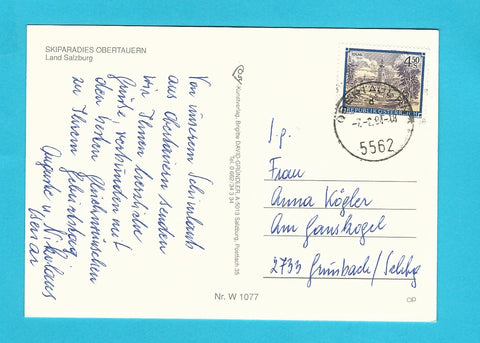 SKIPARADIES OBERTAUERN
Land Salzburg
Von unserem Schiurlaub
aus Obertauern senden
wir Ihnen herzliche
Grüße verbunden mit
den besten Glückwünschen
zu Ihrem Geburtstag
Auguste u. Nikolaus
Kunstverlag, Brigitte DAVID-GRÜNDLER, A-5013 Salzburg, Postfach 35
Tel. 0 662/34 3 34
Nr. W 1077
4,50
REPUBLIK ÖSTERREICH
5562
S.p.
Frau
Anna Kögler
Am Ganskogel
2733 Grünbach/Schbg